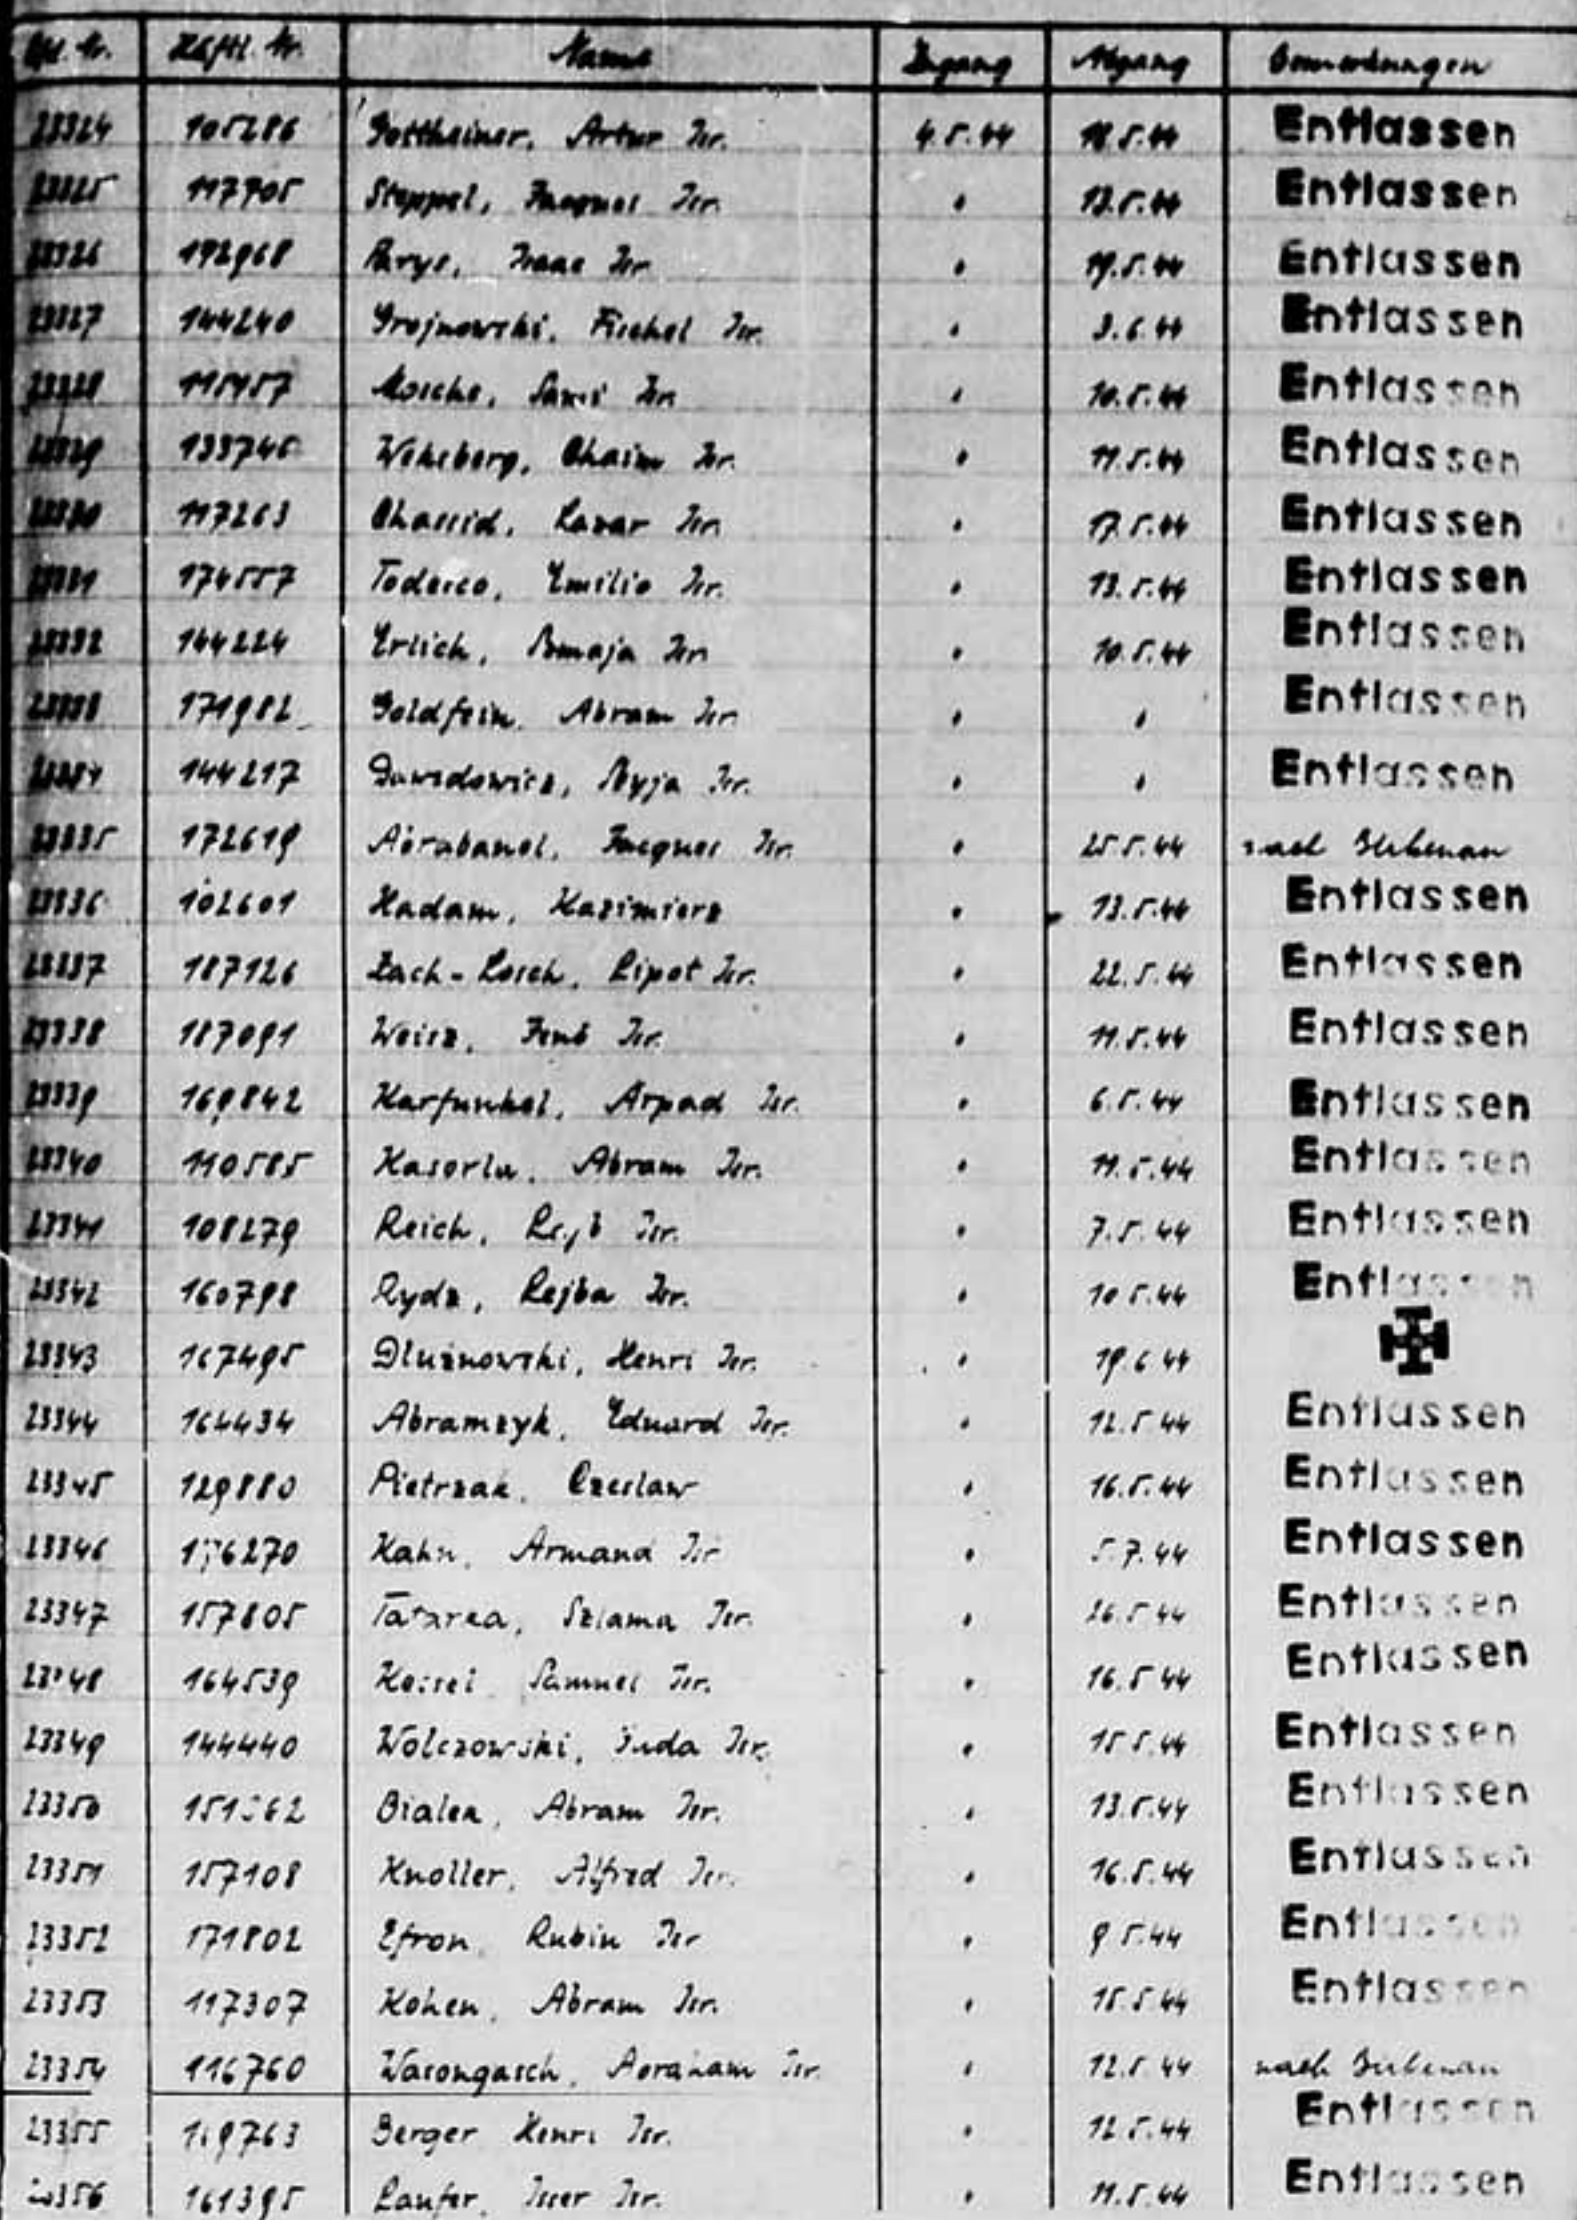 Lfd. Nr. Häftl. Nr. Name Zugang Abgang Bemerkungen
23324 105286 Gottheiner, Artur Isr. 4.5.44 18.5.44 Entlassen
23325 117705 Steppel, Jacques Isr. " 13.5.44 Entlassen
23326 172968 Isaac Isr. " 19.5.44 Entlassen
23327 144240 Grojnowski, Fischel Isr. " 3.6.44 Entlassen
23328 Mosche, Sami Isr. " 10.5.44 Entlassen
23329 Weksberg, Chaim Isr. " 11.5.44 Entlassen
23330 117263 Chassid, Lazar Isr. " 17.5.44 Entlassen
23331 174557 Todesco, Emilio Isr. " 13.5.44 Entlassen
23332 144224 Erlich, Isr. " 10.5.44 Entlassen
23333 171982 Goldfein, Abram Isr. " " Entlassen
23334 144217 Dawidowicz, Isr. " " Entlassen
23335 172619 Abrabanel, Jacques Isr. " 25.5.44 nach Birkenau
23336 102601 Kadam, Kazimierz " 13.5.44 Entlassen
23337 187126 Lipot Isr. " 22.5.44 Entlassen
23338 187091 Weisz, Isr. " 11.5.44 Entlassen
23339 169842 Karfunkel, Arpad Isr. " 6.5.44 Entlassen
23340 110585 Kasorla, Abram Isr. " 11.5.44 Entlassen
23341 108279 Reich, Isr. " 7.5.44 Entlassen
23342 160798 Rydz, Lejba Isr. " 10.5.44 Entlassen
23343 167495 Dluznowski, Henri Isr. " 19.6.44
23344 164434 Abramzyk, Eduard Isr. " 12.5.44 Entlassen
23345 129880 Pietrzak, Czeslaw " 16.5.44 Entlassen
23346 176270 Kahn, Armand Isr. " 5.7.44 Entlassen
23347 157805 Szlama Isr. " 26.5.44 Entlassen
23348 164539 Samuel Isr. " 16.5.44 Entlassen
23349 144440 Wolczowski, Juda Isr. " 15.5.44 Entlassen
23350 Bialek, Abram Isr. " 13.5.44 Entlassen
23351 157108 Knoller, Alfred Isr. " 16.5.44 Entlassen
23352 171802 Efron, Rubin Isr. " 9.5.44 Entlassen
23353 117307 Kohen, Abram Isr. " 15.5.44 Entlassen
23354 116760 Wasongasch, Abraham Isr. " 12.5.44 nach Birkenau
23355 Berger Henri Isr. " 12.5.44 Entlassen
23356 161395 Laufer, Isr. " 11.5.44 Entlassen